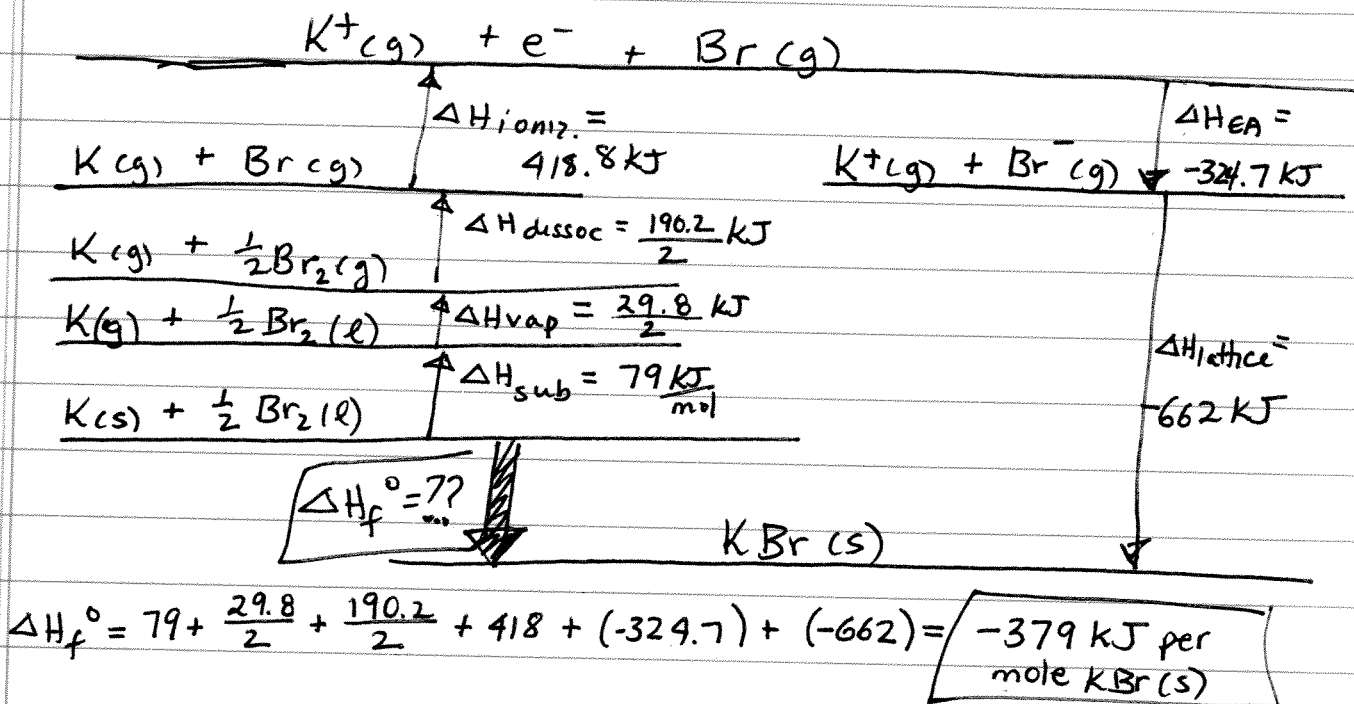 K⁺(g) + e⁻ + Br(g)
ΔHioniz. = 418.8 kJ
ΔHEA = -324.7 kJ
K(g) + Br(g)
K⁺(g) + Br⁻(g)
ΔHdissoc = 190.2/2 kJ
K(g) + ½Br₂(g)
ΔHvap = 29.8/2 kJ
K(g) + ½Br₂(l)
ΔHlattice = -662 kJ
ΔHsub = 79 kJ/mol
K(s) + ½Br₂(l)
ΔHf° = ??
KBr(s)
ΔHf° = 79 + 29.8/2 + 190.2/2 + 418 + (-324.7) + (-662) = -379 kJ per
mole KBr(s)